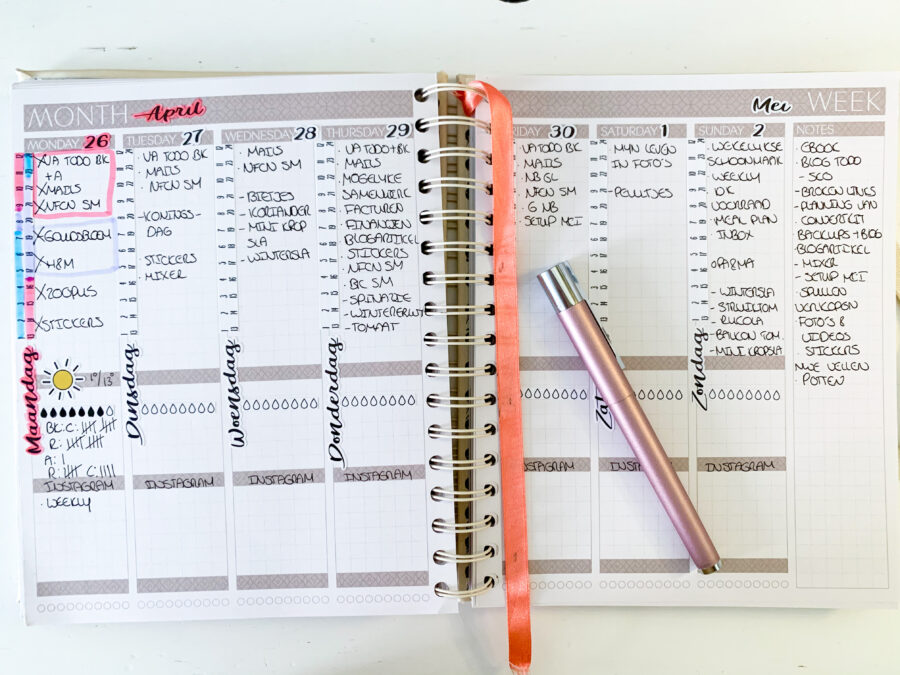 MONTH April
MONDAY 26
VA TODO BK
+ A
MAILS
NFCN SM
GOUDSBLOEM
M8M
ZOOPLUS
STICKERS
Maandag
1°/13°
BK: C:
R:
A: 1
INSTAGRAM
· WEEKLY
TUESDAY 27
· VA TODO BK
· MAILS
· NFCN SM
-KONINGS-
DAG
· STICKERS
· MIXER
Dinsdag
INSTAGRAM
WEDNESDAY 28
· MAILS
· NFCN SM
-BIETJES
-KORIANDER
- MINI KROP
SLA
- WINTERSLA
Woensdag
INSTAGRAM
THURSDAY 29
· VA TODO+BK
· MAILS
· MOGELYKE
SAMENWERK
· FACTUREN
· FINANIEN
· BLOGARTIKEL
· STICKERS
· NFCN SM
· BK SM
- SPINAZIE
- TOMAAT
Donderdag
INSTAGRAM
RIDAY 30
· VA TODO BK
· MAILS
· NB GL
· NFCN SM
· G NB
· SETUP MEI
INSTAGRAM
SATURDAY 1
· MYN LEVEN
IN FOTO'S
-PEULTJES
INSTAG
Mei WEEK
SUNDAY 2
· WEKELYKSE
SCHOONMAAK
· WEEKLY
· VOORRAAD
· MEAL PLAN
· INBOX
- WINTERSLA
- RUCOLA
- BALKON TOM.
- MINI KROPSLA
Zondag
INSTAGRAM
NOTES
· EBOOK
· BLOG TODO
- SEO
- BROKEN LINKS
- PLANNING VAN
- CONVERTKIT
BACKUPS + BLOG
· BLOGARTIKEL
- MIXER
- SETUP MEI
· SPULLEN
VERKOPEN
· FOTO'S &
VIDEOS
· STICKERS
NWE VELLEN
· POTTEN